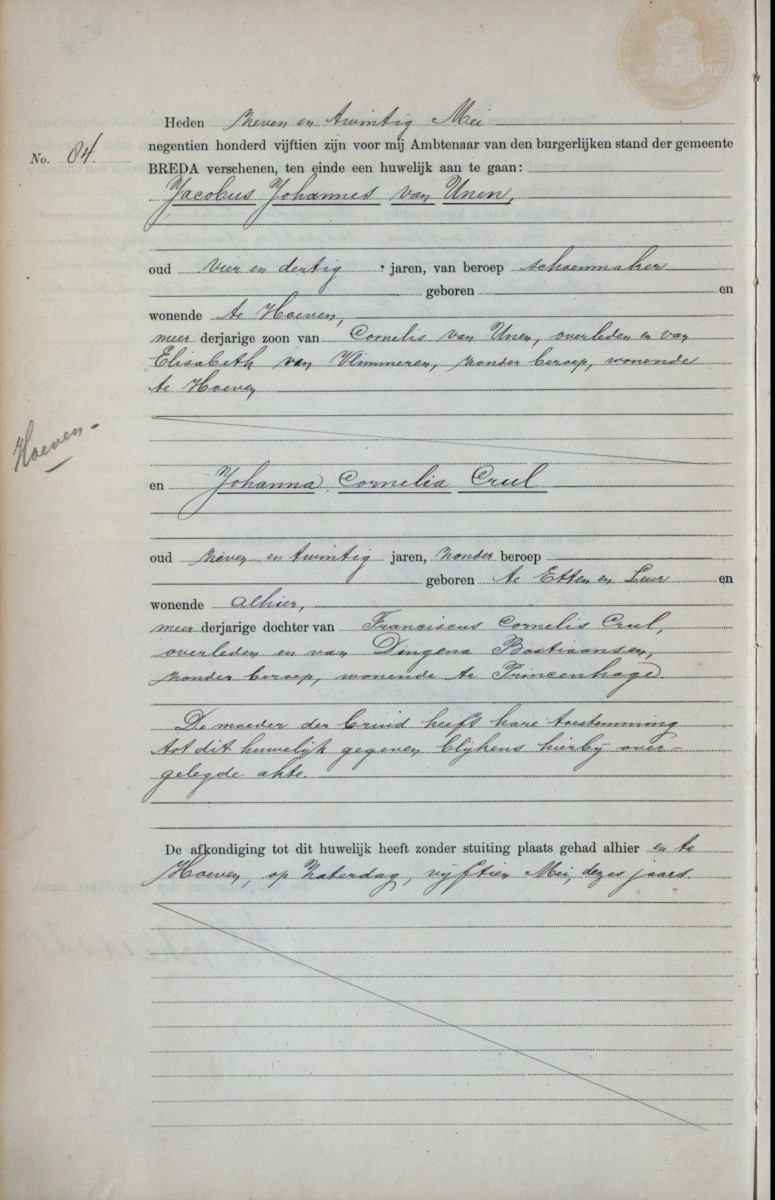 Heden zeven en twintig Mei
negentien honderd vijftien zijn voor mij Ambtenaar van den burgerlijken stand der gemeente
No. 84.
BREDA verschenen, ten einde een huwelijk aan te gaan:
Jacobus Johannes van Unen,
oud vier en dertig jaren, van beroep schoenmaker
geboren en
wonende te Hoeven,
meer derjarige zoon van Cornelis van Unen, overleden en van
Elisabeth van Vlimmeren, zonder beroep, wonende
te Hoeven
Hoeven
en Johanna Cornelia Crul
oud zeven en twintig jaren, zonder beroep
geboren te Etten en Leur en
wonende alhier,
meer derjarige dochter van Franciscus Cornelis Crul,
overleden en van Dingena Bastiaansen,
zonder beroep, wonende te Princenhage
De moeder der bruid heeft hare toestemming
tot dit huwelijk gegeven blijkens hierbij over-
gelegde akte.
De afkondiging tot dit huwelijk heeft zonder stuiting plaats gehad alhier en te
Hoeven, op Zaterdag, vijftien Mei, dezes jaars.